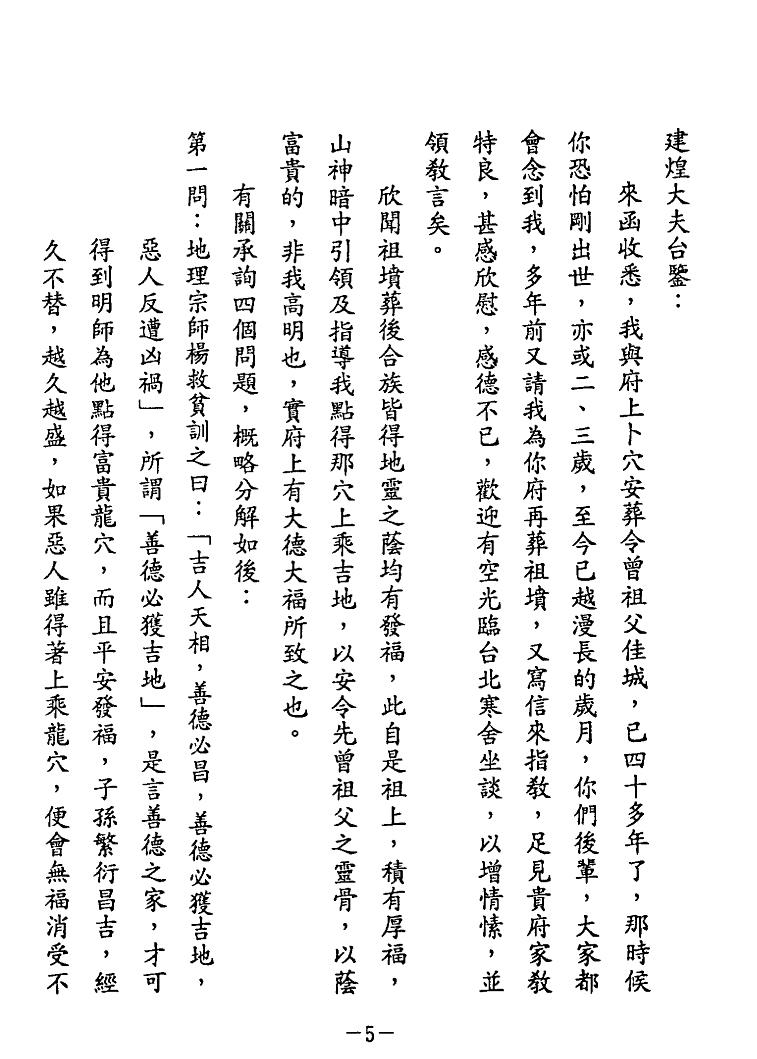 建煌大夫台鑒：
來函收悉，我與府上卜穴安葬令曾祖父佳城，已四十多年了，那時候
你恐怕剛出世，亦或二、三歲，至今已越漫長的歲月，你們後輩，大家都
會念到我，多年前又請我為你府再葬祖墳，又寫信來指教，足見貴府家教
特良，甚感欣慰，感德不已，歡迎有空光臨台北寒舍坐談，以增情愫，並
領教言矣。
欣聞祖墳葬後合族皆得地靈之蔭均有發福，此自是祖上，積有厚福，
山神暗中引領及指導我點得那穴上乘吉地，以安令先曾祖父之靈骨，以蔭
富貴的，非我高明也，實府上有大德大福所致之也。
有關承詢四個問題，概略分解如後：
第一問：地理宗師楊救貧訓之曰：「吉人天相，善德必昌，善德必獲吉地，
惡人反遭凶禍」，所謂「善德必獲吉地」，是言善德之家，才可
得到明師為他點得富貴龍穴，而且平安發福，子孫繁衍昌吉，經
久不替，越久越盛，如果惡人雖得著上乘龍穴，便會無福消受不
－5－